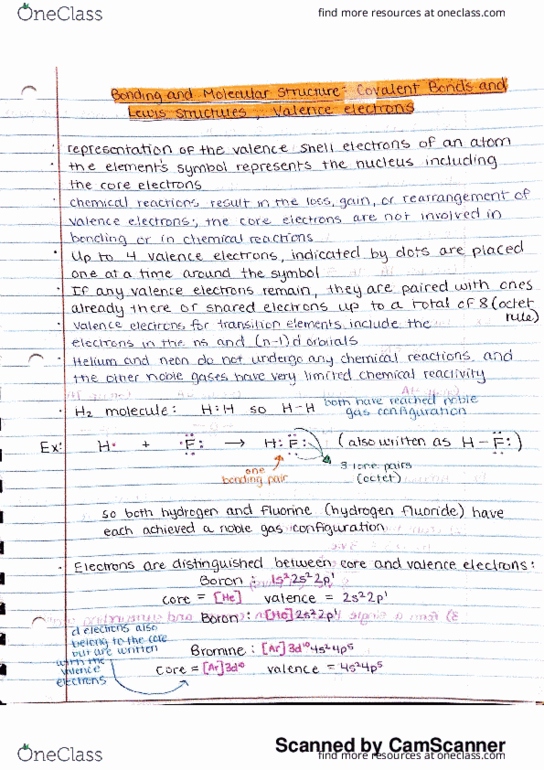 OneClass
find more resources at oneclass.com
Bonding and Molecular Structure: Covalent Bonds and
Lewis Structures, Valence electrons
· representation of the valence shell electrons of an atom
· the element's symbol represents the nucleus including
the core electrons
· chemical reactions result in the loss, gain, or rearrangement of
valence electrons; the core electrons are not involved in
bonding or in chemical reactions
· Up to 4 valence electrons, indicated by dots are placed
one at a time around the symbol
· If any valence electrons remain, they are paired with ones
already there or shared electrons up to a total of 8 (octet
rule)
· valence electrons for transition elements include the
electrons in the ns and (n-1)d orbitals
· Helium and neon do not undergo any chemical reactions, and
the other noble gases have very limited chemical reactivity
· H₂ molecule: H:H so H-H both have reached noble
gas configuration
Ex: H· + ·F: → H:F: (also written as H-F:)
one
bonding pair
3 lone pairs
(octet)
so both hydrogen and fluorine (hydrogen fluoride) have
each achieved a noble gas configuration
· Electrons are distinguished between core and valence electrons:
Boron: 1s²2s²2p¹
core = [He] valence = 2s²2p¹
Boron: [He]2s²2p¹
d electrons also
belong to the core
but are written
with the
valence
electrons
Bromine: [Ar]3d¹⁰4s²4p⁵
core = [Ar]3d¹⁰ valence = 4s²4p⁵
Scanned by CamScanner
OneClass
find more resources at oneclass.com